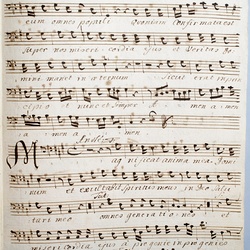 eum omnes populi quoniam confirmata est
super nos misericordia ejus et veritas Do
mini manet in aeternum Sicut erat in prin
cipio et nunc et semper A men a men
a men a men
Andante
Magnificat anima mea Domi
num et exultavit spiritus meus in Deo salu
tari meo omnes generationes et
misericordia ejus a progenie in progenies